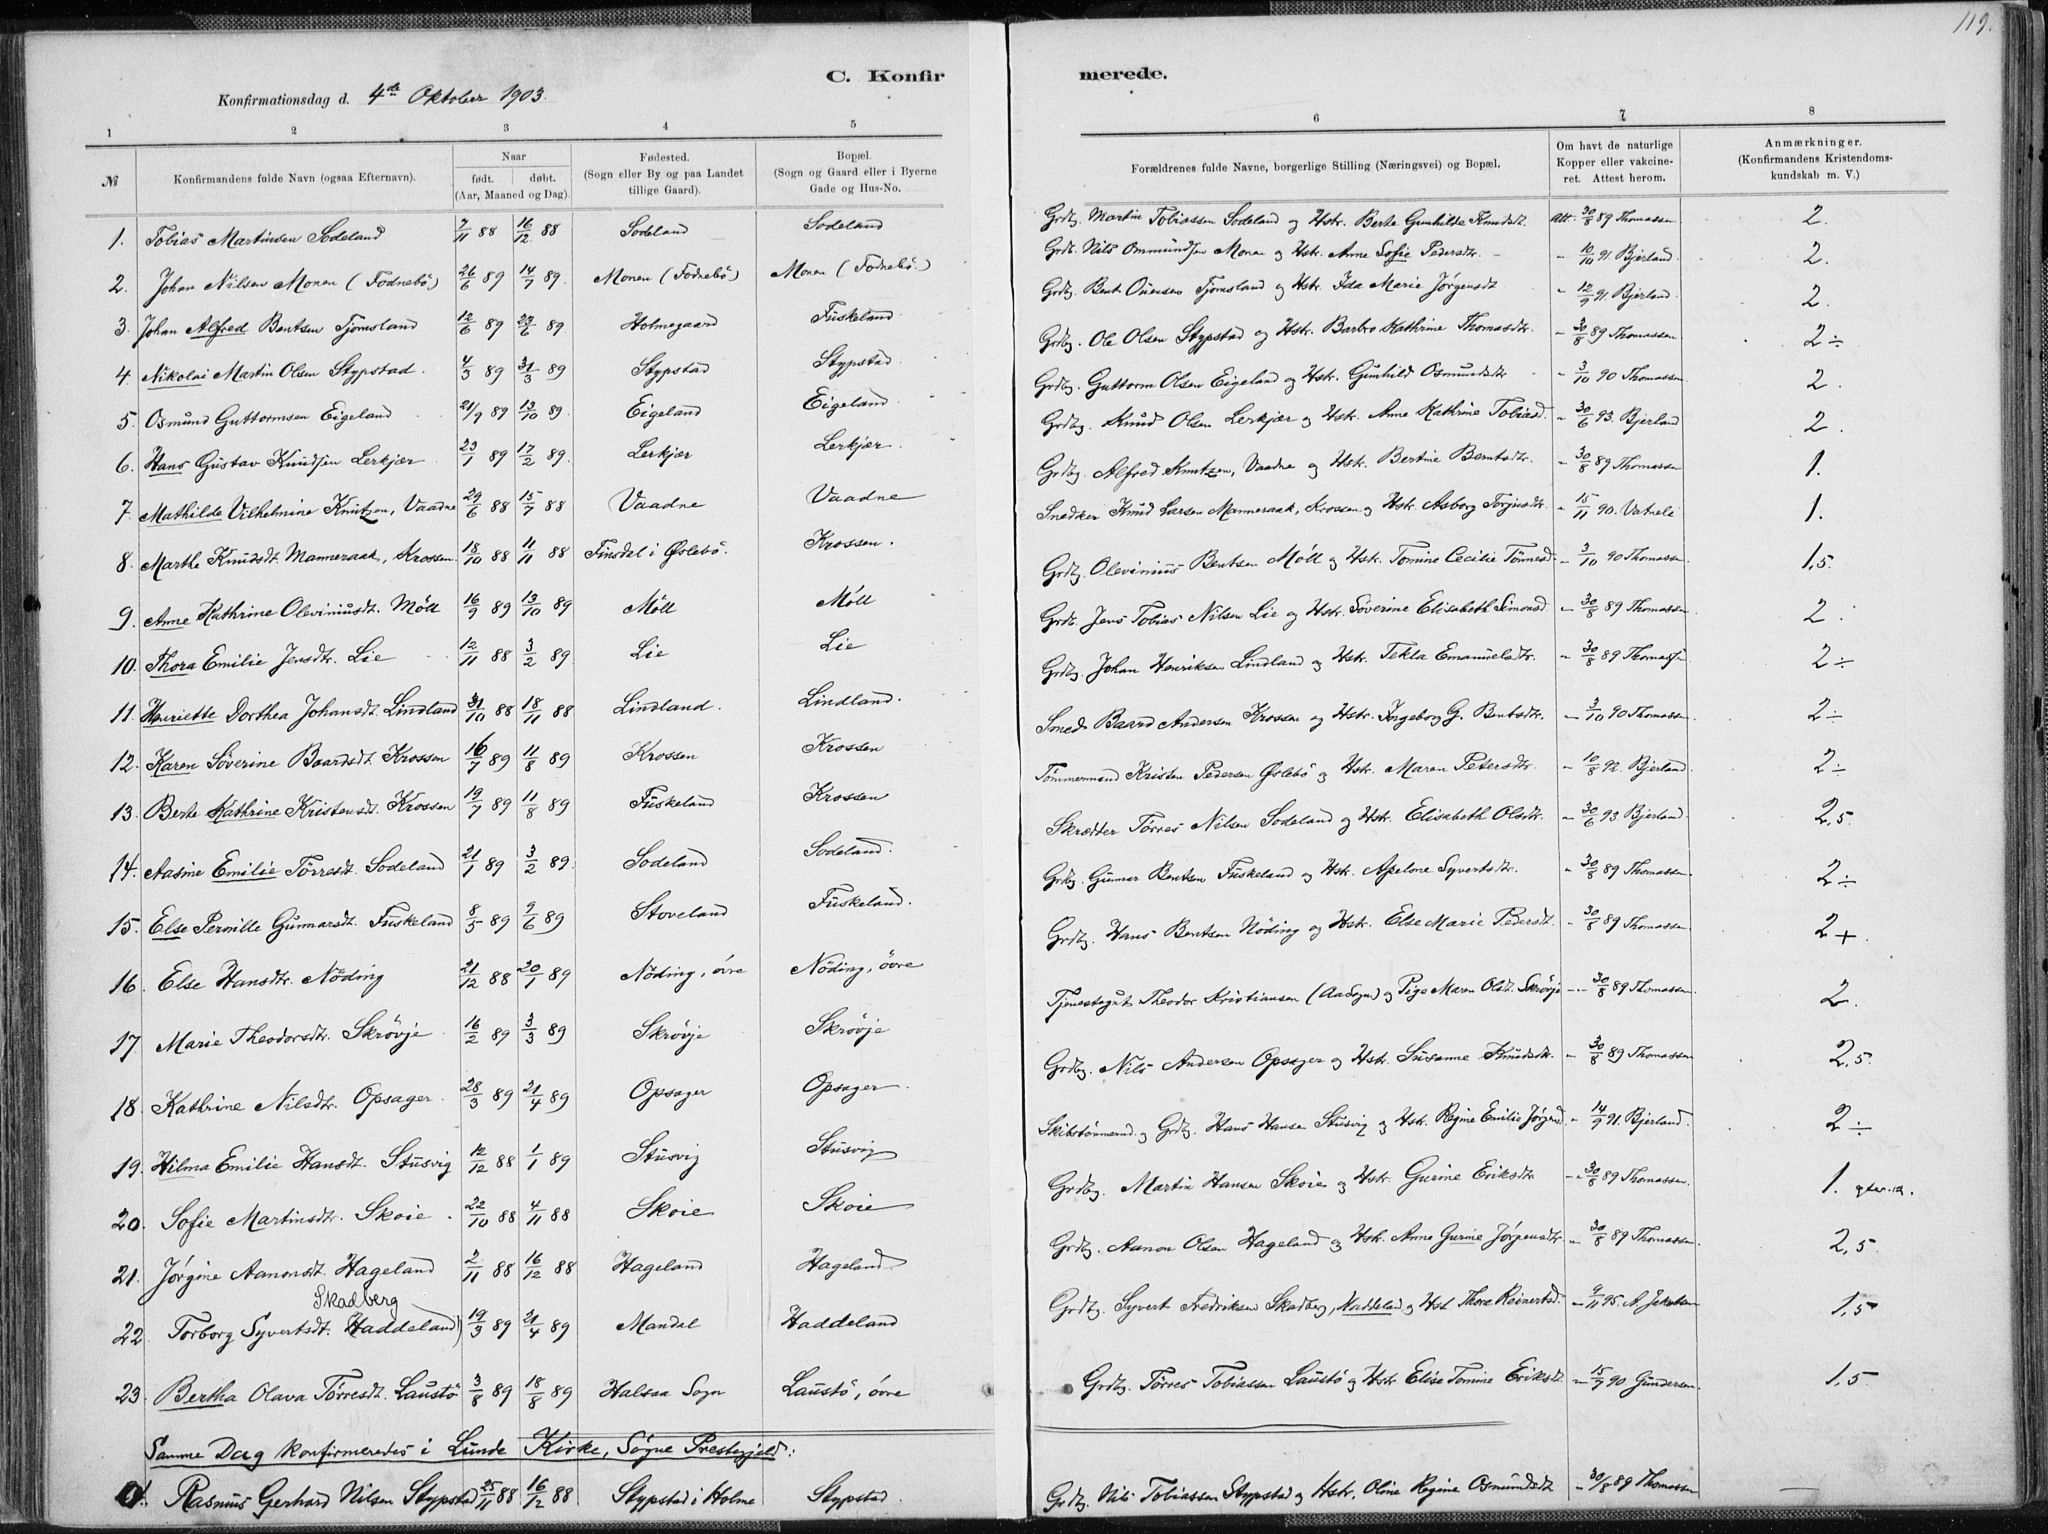 119.
C. Konfirmerede.
Konfirmationsdag d. 4de Oktober 1903.
1 2 3 4 5 6 7 8
№ Konfirmandens fulde Navn (ogsaa Efternavn). Naar født. døbt. (Aar, Maaned og Dag). Fødested. (Sogn eller By og paa Landet tillige Gaard). Bopæl. (Sogn og Gaard eller i Byerne Gade og Hus-No. Forældrenes fulde Navne, borgerlige Stilling (Næringsvei) og Bopæl. Om havt de naturlige Kopper eller vakcineret. Attest herom. Anmærkninger. (Konfirmandens Kristendomskundskab m. V.)
1. Tobias Martinsen Sodeland 2/11 88 16/12 88 Sodeland Sodeland Grdbg. Martin Tobiassen Sodeland og Hstr. Berte Gunhilde Knudsdt. Att. 30/8 89 Thomassen 2.
2. Johan Nilsen Monen (Fodnebö) 26/6 89 14/7 89. Monen (Fodnebö) Monen (Fodnebö.) Grdb. Nils Ommundsen Monen og Hstr. Anne Sofie Pedersdtr. – " 10/10 91. Bjerland. 2.
3. Johan Alfred Bentsen Tjomsland 12/6 89 23/6 89 Holmegaard Fuskeland Grdbg. Bent Ouensen Tjomsland og Hstr. Ida Marie Jørgensdt " 12/9 91. Bjerland. 2.
4. Nikolai Martin Olsen Stypstad. 4/3 89 31/3 89 Stypstad Stypstad Grdbg. Ole Olsen Stypstad og Hstr. Barbro Kathrine Thomasdtr. " 30/8 89 Thomassen 2÷
5. Osmund Guttormsen Eigeland 21/9 89 13/10 89. Eigeland Eigeland Grdbg. Guttorm Olsen Eigeland og Hstr. Gunhild Osmundsdtr " 3/10 90 Thomassen 2.
6. Hans Gustav Knudsen Lerkjær 23/1 89 17/2 89. Lerkjær Lerkjær. Grdbg. Knud Olsen Lerkjær og Hstr. Anne Kathrine Tobiasd. " 30/6 93. Bjerland 2.
7. Mathilde Vilhelmine Knutzen, Vaadne 29/6 88 15/7 88 Vaadne Vaadne Grdbg. Alfred Knutzen, Vaadne og Hstr. Bertine Berntsdtr. " 30/8 89 Thomassen 1.
8. Marthe Knudsdt. Manneraak, Krossen 18/10 88 11/11 88 Finsdal i Øslebö. Krossen. Snedker Knud Larsen Manneraak, Krossen og Hstr. Asborg Torjusdtr. " 15/11 90. Vatneli 1.
9. Anne Kathrine Oleviniusdt. Möll 16/9 89 13/10 89 Möll Möll Grdbg. Olevinius Bentsen Möll og Hstr. Tomine Cecilie Tönnesd. " 3/10 90 Thomassen. 1,5.
10. Thora Emilie Jensdtr. Lie 12/11 88 3/2 89. Lie Lie Grdb. Jens Tobias Nilsen Lie og Hstr. Söverine Elisabeth Simonsd. " 30/8 89 Thomassen. 2.
11. Henriette Dorthea Johansdt. Lindland 31/10 88 18/11 88 Lindland. Lindland. Grdbg. Johan Henriksen Lindland og Hstr. Tekla Emanuelsdtr. " 30/8 89 Thomassen 2÷
12. Karen Söverine Baardsdt. Krossen 16/7 89 11/8 89 Krossen Krossen Sned. Baard Andersen Krossen og Hstr. Ingeborg G. Bentsdtr. " 3/10 90 Thomassen. 2÷
13. Berte Kathrine Kristensdt. Krossen 19/7 89 11/8 89 Fuskeland Krossen Tömmermand Kristen Pedersen Øslebö og Hstr. Maren Petersdtr. " 10/8 92. Bjerland. 2÷
14. Aasine Emilie Törresdt. Sodeland 21/1 89 3/2 89. Sodeland Sodeland. Skrædder Törres Nilsen Sodeland og Hstr. Elisabeth Olsdtr. " 30/6 93. Bjerland. 2,5.
15. Else Pernille Gunnarsdt. Fuskeland 8/5 89 9/6 89 Stoveland Fuskeland. Grdbg. Gunnar Bentsen Fuskeland og Hstr. Apelone Syvertsdtr. " 30/8 89 Thomassen. 2÷
16. Else Hansdtr. Nöding 21/12 88 20/1 89 Nöding, övre Nöding, övre Grdbg. Hans Bentsen Nöding og Hstr. Else Marie Pedersdt. " 30/8 89 Thomassen. 2+.
17. Marie Theodorsdtr. Skrövje 16/2 89 3/3 89 Skrövje Skrövje Tjenestegut Theodor Kristiansen (Aa Sogn) og Pige Maren Olsdt. Skrövje " 30/8 89 Thomassen. 2.
18. Kathrine Nilsdtr. Opsager. 28/3 89 21/4 89 Opsager Opsager. Grdbg. Nils Andersen Opsager og Hstr. Susanne Knudsdtr. " 30/8 89 Thomassen 2,5.
19. Hilma Emilie Hansdt. Stusvig 12/12 88 1/1 89 Stusvig Stusvig Skibstömmermd. og Grdbg. Hans Hansen Stusvig og Hstr. Regine Emilie Jörgensd. " 14/9 91. Bjerland. 2÷
20. Sofie Martinsdtr. Skoie. 22/10 88 4/11 88 Skoie Skoie Grdbg. Martin Hansen Skoie og Hstr. Gurine Eriksdtr. " 30/8 89 Thomassen. 1.
21. Jörgine Aanonsdt. Hageland 2/11 88 16/12 88 Hageland Hageland. Grdbg. Aanon Olsen Hageland og Hstr. Anne Gurine Jörgensdtr. " 30/8 89 Thomassen. 2,5.
Skadberg
22. Torborg Syvertsdt. Haddeland) 19/3 89 21/4 89 Mandal Haddeland Grdbg. Syvert Fredriksen Skadberg, Haddeland og Hst. Thora Reinertsd. " 9/11 95. A. Jakobsen 1,5
23. Bertha Olava Törresdt. Laustö 3/8 89 18/8 89 Halsaa Sogn Laustö, övre Grdbg. Törres Tobiassen Laustö og Hstr. Elise Tomine Eriksdt " 15/9 90. Gundersen. 1,5
Samme Dag konfirmeredes i Lunde Kirke, Søgne Prestegjeld:
Rasmus Gerhard Nilsen Stypstad 25/11 88 16/12 88 Stypstad i Holme Stypstad. Grdbg. Nils Tobiassen Stypstad og Hstr. Oline Regine Osmundsdt " 30/8 89 Thomassen —